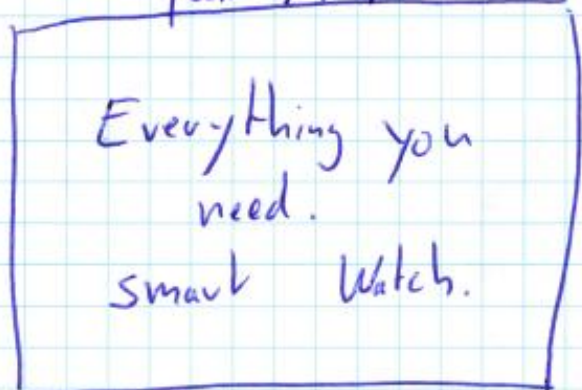 Everything you
need.
smart Watch.